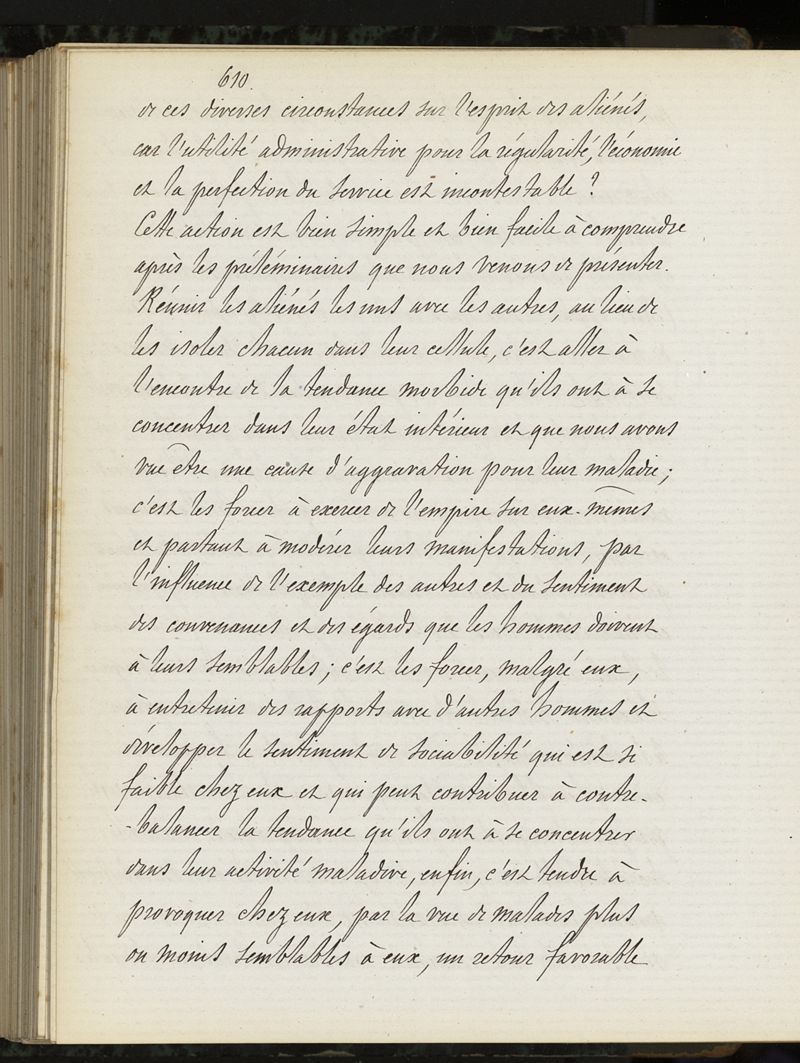 610.
de ces diverses circonstances sur l'esprit des aliénés,
car l'utilité administrative pour la régularité, l'économie
et la perfection du service est incontestable ?
Cette action est bien simple et bien facile à comprendre
après les préléminaires que nous venons de présenter.
Réunir les aliénés les uns avec les autres, au lieu de
les isoler chacun dans leur cellule, c'est aller à
l'encontre de la tendance morbide qu'ils ont à se
concentrer dans leur état intérieur et que nous avons
vue être une cause d'aggravation pour leur maladie ;
c'est les forcer à exercer de l'empire sur eux-mêmes
et partant à modérer leurs manifestations, par
l'influence de l'exemple des autres et du sentiment
des convenances et des égards que les hommes doivent
à leurs semblables ; c'est les forcer, malgré eux,
à entretenir des rapports avec d'autres hommes et
développer le sentiment de sociabilité qui est si
faible chez eux et qui peut contribuer à contre-
-balancer la tendance qu'ils ont à se concentrer
dans leur activité maladive, enfin, c'est tendre à
provoquer chez eux, par la vue de malades plus
ou moins semblables à eux, un retour favorable